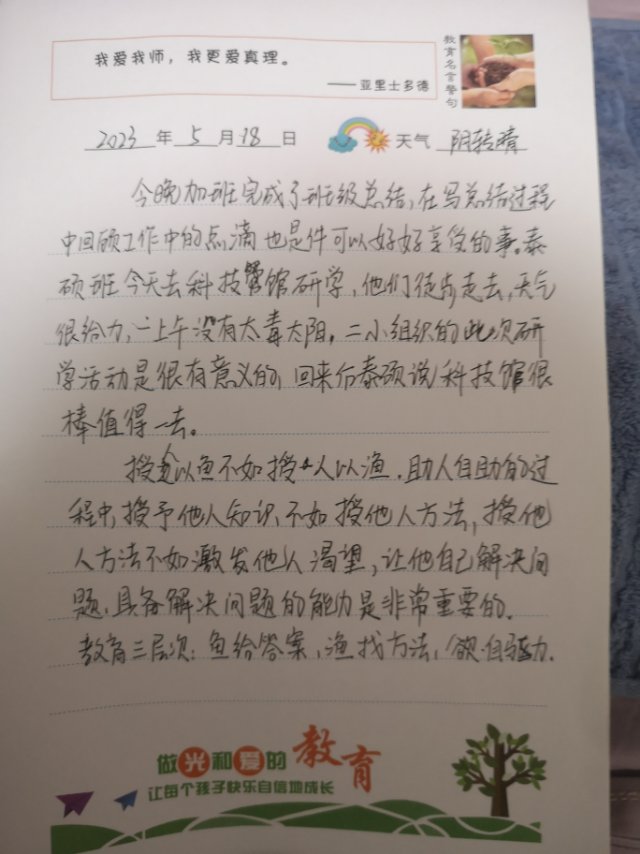 我爱我师，我更爱真理。
——亚里士多德
教育名言警句
2023 年 5 月 18 日 天气 阴转晴
今晚加班完成了班级总结，在写总结过程
中回顾工作中的点滴也是件可以好好享受的事。泰
硕班今天去科技馆研学，他们徒步走去，天气
很给力，一上午没有太毒太阳。二小组织的此次研
学活动是很有意义的，回来后泰硕说科技馆很
棒值得一去。
授人以鱼不如授人以渔，助人自助的过
程中，授予他人知识不如授他人方法，授他
人方法不如激发他人渴望，让他自己解决问
题，具备解决问题的能力是非常重要的。
教育三层次：鱼给答案，渔找方法，欲自驱力.
做光和爱的教育
让每个孩子快乐自信地成长